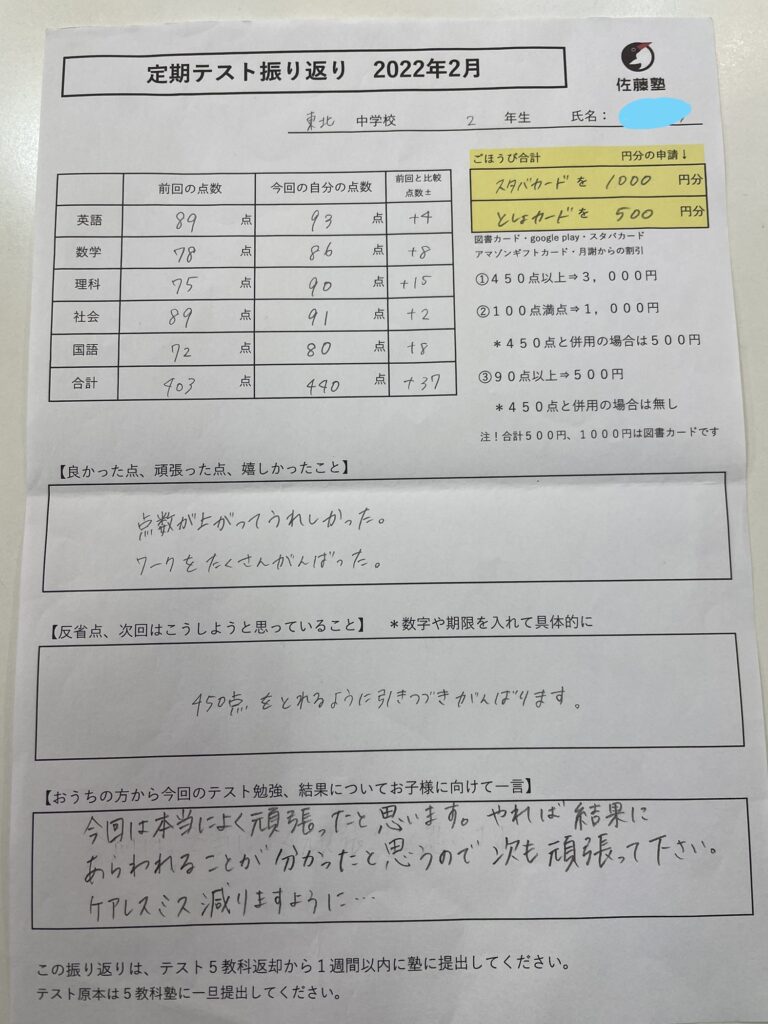 定期テスト振り返り 2022年2月
佐藤塾
東北 中学校 2 年生 氏名：
ごほうび合計 円分の申請↓
スタバカードを 1000 円分
としょカードを 500 円分
図書カード・google play・スタバカード
アマゾンギフトカード・月謝からの割引
①４５０点以上⇒３，０００円
②１００点満点⇒１，０００円
＊４５０点と併用の場合は５００円
③９０点以上⇒５００円
＊４５０点と併用の場合は無し
注！合計５００円、１０００円は図書カードです
前回の点数 今回の自分の点数 前回と比較
点数±
英語 89 点 93 点 +4
数学 78 点 86 点 +8
理科 75 点 90 点 +15
社会 89 点 91 点 +2
国語 72 点 80 点 +8
合計 403 点 440 点 +37
【良かった点、頑張った点、嬉しかったこと】
点数が上がってうれしかった。
ワークをたくさんがんばった。
【反省点、次回はこうしようと思っていること】 ＊数字や期限を入れて具体的に
450点をとれるように引きつづきがんばります。
【おうちの方から今回のテスト勉強、結果についてお子様に向けて一言】
今回は本当によく頑張ったと思います。やれば結果に
あらわれることが分かったと思うので次も頑張って下さい。
ケアレスミス減りますように…
この振り返りは、テスト５教科返却から１週間以内に塾に提出してください。
テスト原本は５教科塾に一旦提出してください。